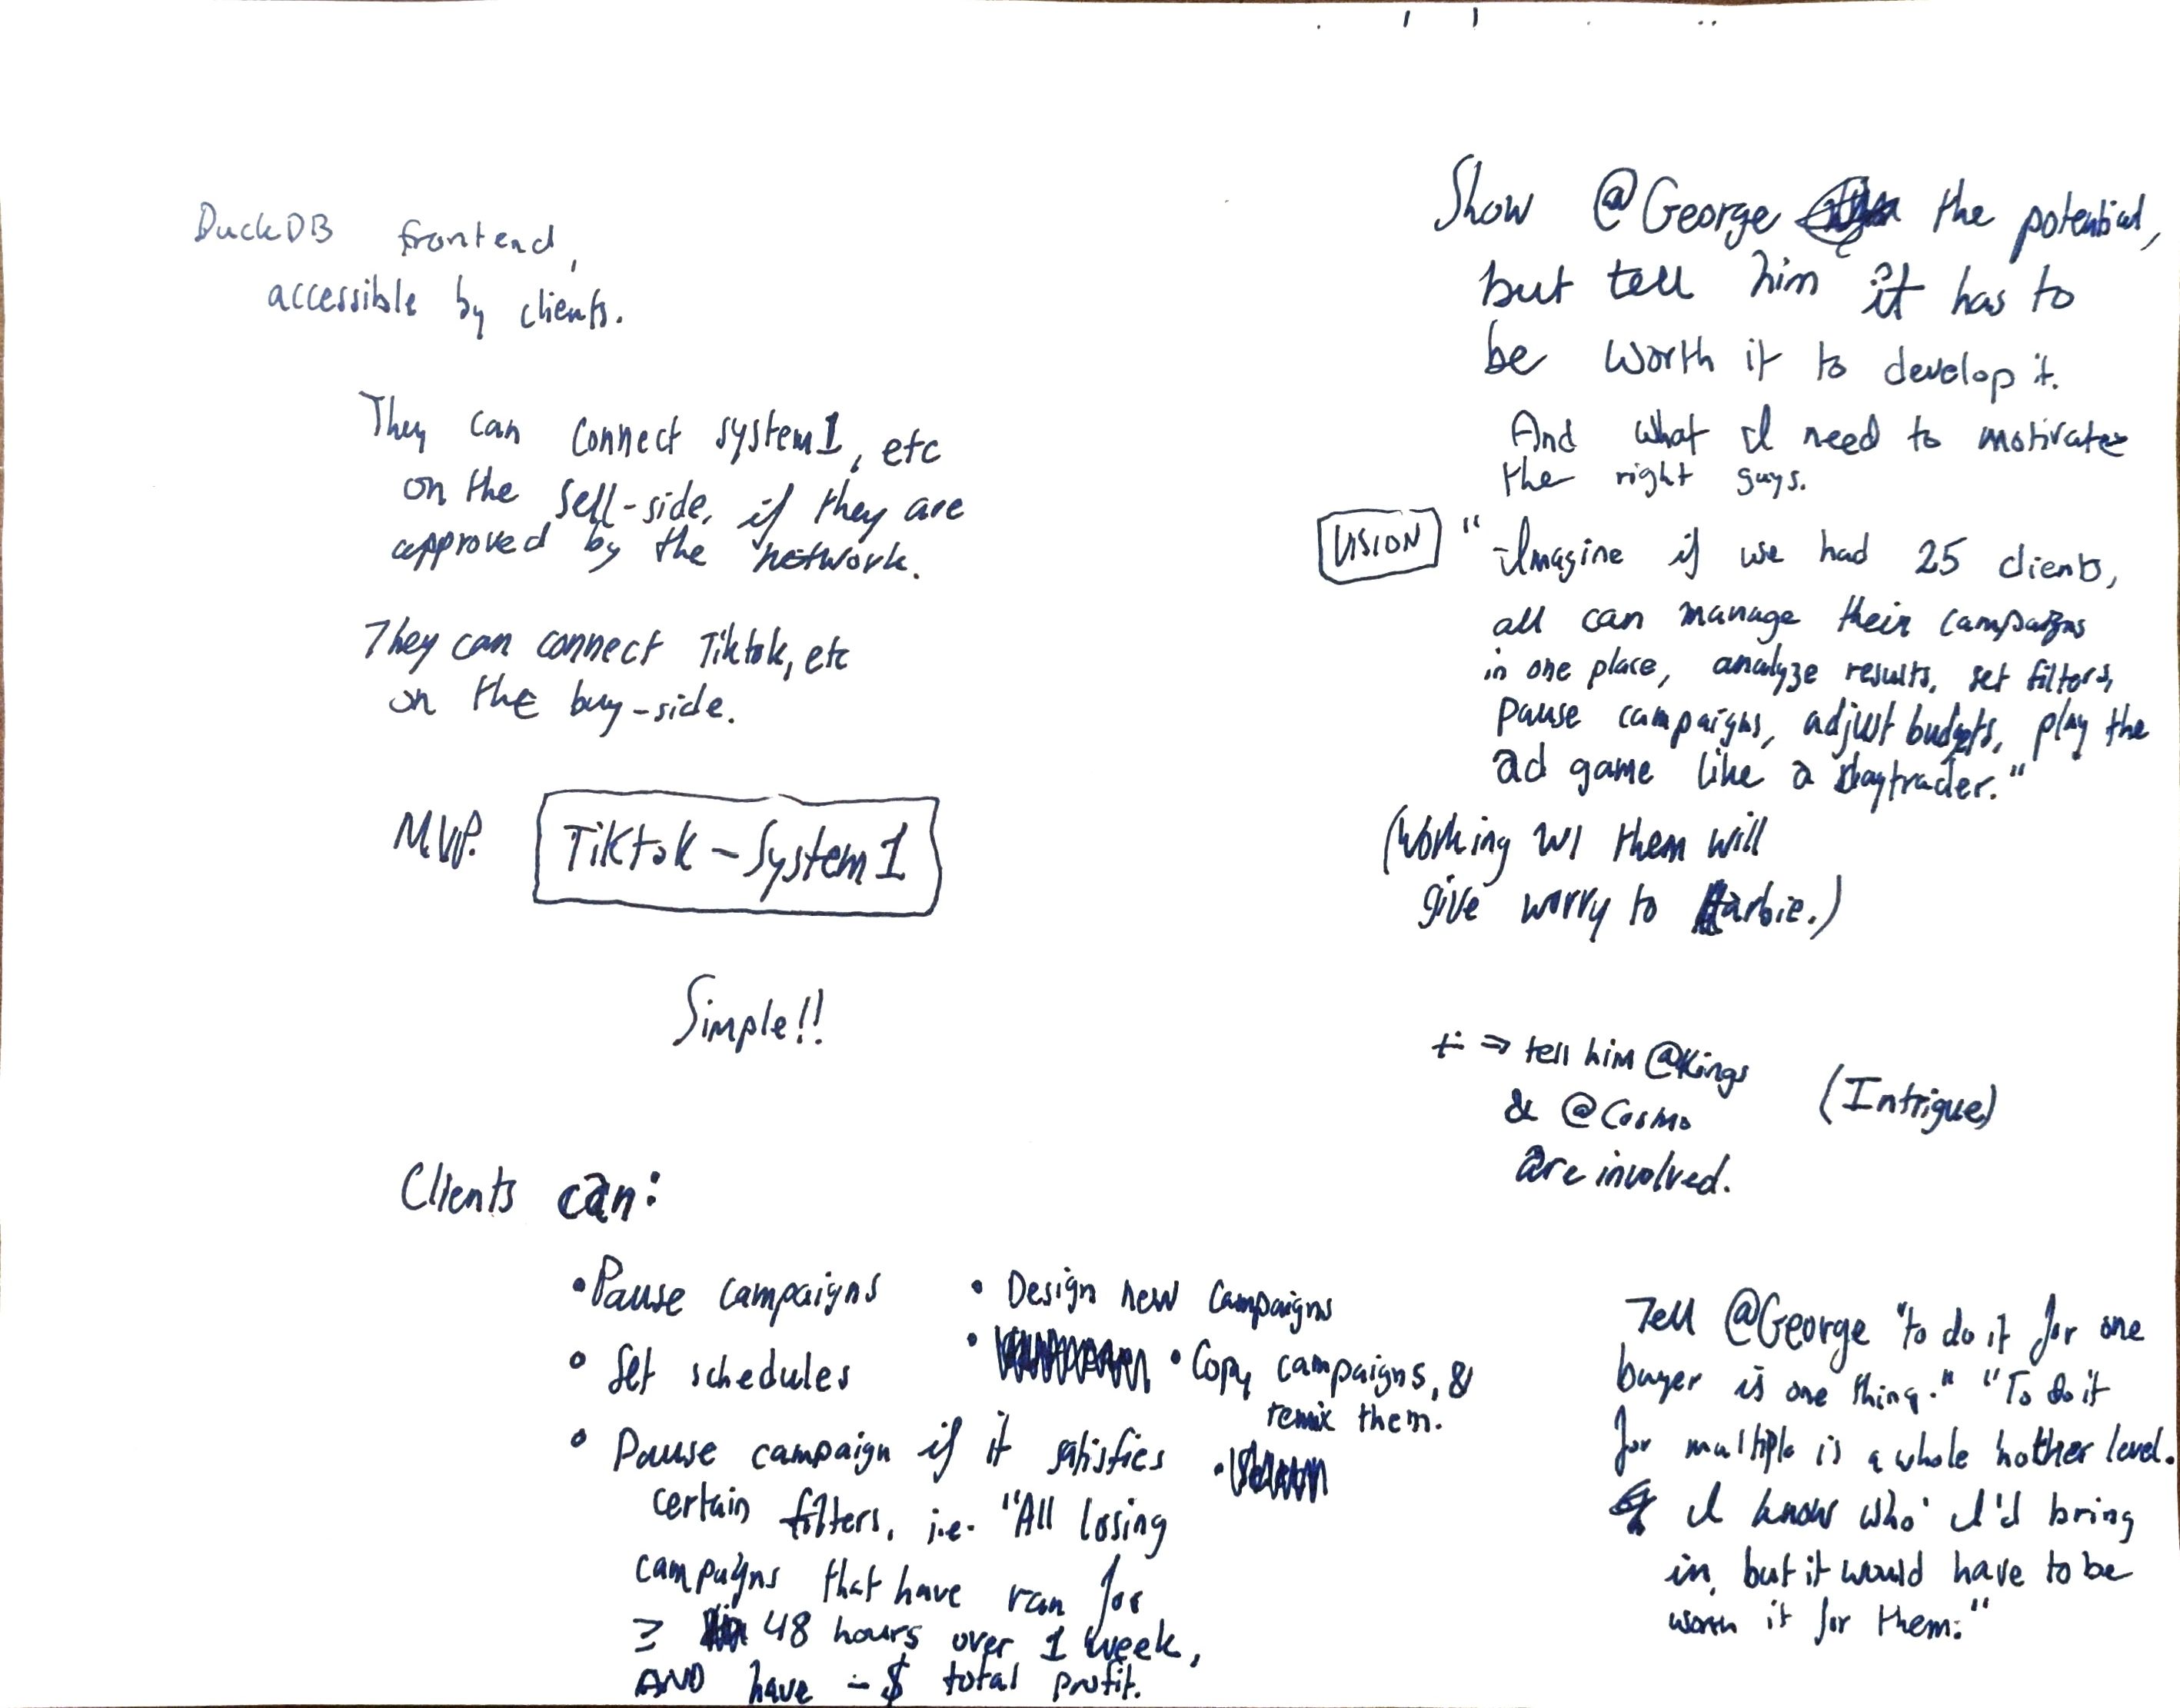 DuckDB frontend,
accessible by clients.
They can connect system1, etc
on the sell-side, if they are
approved by the network.
They can connect Tiktok, etc
on the buy-side.
MVP.
Tiktok - System1
Simple!!
Clients can:
• Pause campaigns
• Set schedules
• Pause campaign if it satisfies
certain filters, i.e. "All losing
campaigns that have ran for
≥ 48 hours over 1 week,
AND have -$ total profit.
• Design new campaigns
• Copy campaigns, &
remix them.
Show @George the potential,
but tell him it has to
be worth it to develop it.
And what I need to motivate
the right guys.
VISION
"Imagine if we had 25 clients,
all can manage their campaigns
in one place, analyze results, set filters,
pause campaigns, adjust budgets, play the
ad game like a daytrader."
(Working w/ them will
give worry to Barbie.)
+ ⇒ tell him @Kings
& @Cosmo
are involved.
(Intrigue)
Tell @George "to do it for one
buyer is one thing." "To do it
for multiple is a whole nother level.
I know who I'd bring
in, but it would have to be
worth it for them."